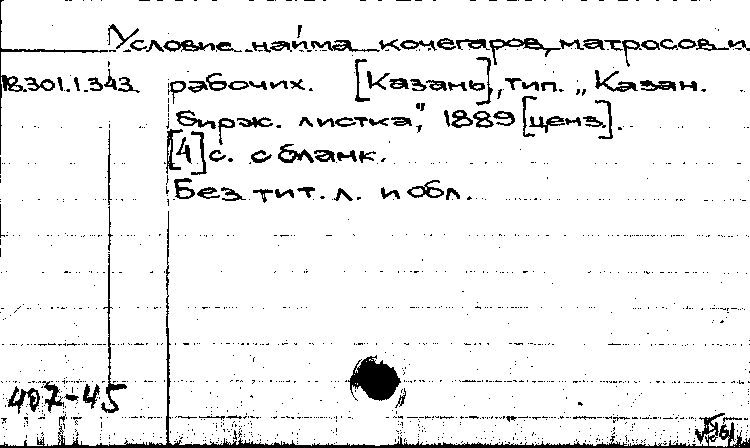 Условие найма кочегаров, матросов и
18.301.1.343. рабочих. [Казань], тип. „Казан.
бирж. листка", 1889 [ценз.].
[4] с. с бланк.
Без тит. л. и обл.
407-45